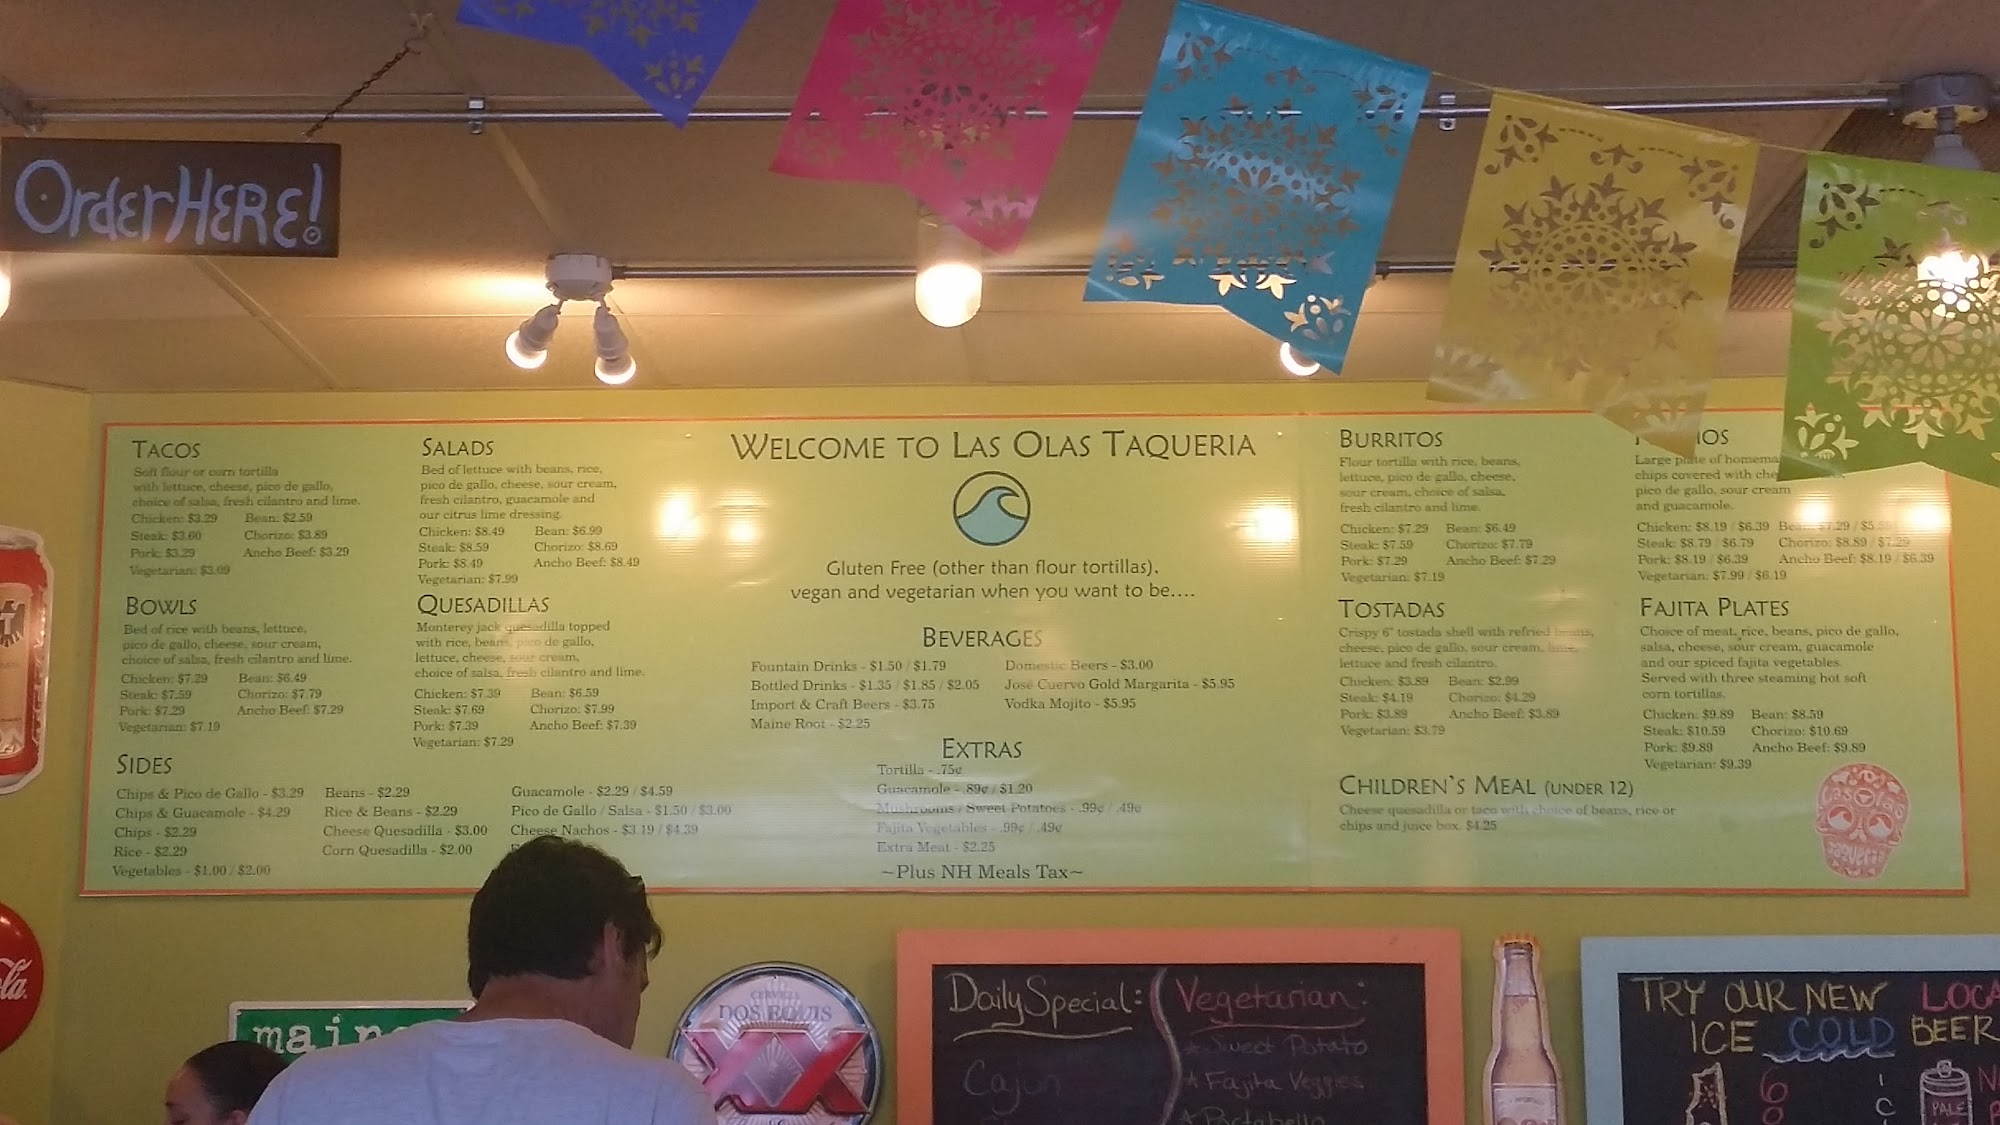 Order HERE!
TACOS
Soft flour or corn tortilla
with lettuce, cheese, pico de gallo,
choice of salsa, fresh cilantro and lime.
Chicken: $3.29 Bean: $2.59
Steak: $3.60 Chorizo: $3.89
Pork: $3.29 Ancho Beef: $3.29
Vegetarian: $3.09
BOWLS
Bed of rice with beans, lettuce,
pico de gallo, cheese, sour cream,
choice of salsa, fresh cilantro and lime.
Chicken: $7.29 Bean: $6.49
Steak: $7.59 Chorizo: $7.79
Pork: $7.29 Ancho Beef: $7.29
Vegetarian: $7.19
SALADS
Bed of lettuce with beans, rice,
pico de gallo, cheese, sour cream,
fresh cilantro, guacamole and
our citrus lime dressing.
Chicken: $8.49 Bean: $6.99
Steak: $8.59 Chorizo: $8.69
Pork: $8.49 Ancho Beef: $8.49
Vegetarian: $7.99
QUESADILLAS
Monterey jack quesadilla topped
with rice, beans, pico de gallo,
lettuce, cheese, sour cream,
choice of salsa, fresh cilantro and lime.
Chicken: $7.39 Bean: $6.59
Steak: $7.69 Chorizo: $7.99
Pork: $7.39 Ancho Beef: $7.39
Vegetarian: $7.29
SIDES
Chips & Pico de Gallo - $3.29
Chips & Guacamole - $4.29
Chips - $2.29
Rice - $2.29
Vegetables - $1.00 / $2.00
Beans - $2.29
Rice & Beans - $2.29
Cheese Quesadilla - $3.00
Corn Quesadilla - $2.00
Guacamole - $2.29 / $4.59
Pico de Gallo / Salsa - $1.50 / $3.00
Cheese Nachos - $3.19 / $4.39
WELCOME TO LAS OLAS TAQUERIA
Gluten Free (other than flour tortillas),
vegan and vegetarian when you want to be....
BEVERAGES
Fountain Drinks - $1.50 / $1.79
Bottled Drinks - $1.35 / $1.85 / $2.05
Import & Craft Beers - $3.75
Maine Root - $2.25
Domestic Beers - $3.00
José Cuervo Gold Margarita - $5.95
Vodka Mojito - $5.95
EXTRAS
Tortilla - .75¢
Guacamole - .89¢ / $1.20
Mushrooms / Sweet Potatoes - .99¢ / .49¢
Fajita Vegetables - .99¢ / .49¢
Extra Meat - $2.25
~Plus NH Meals Tax~
BURRITOS
Flour tortilla with rice, beans,
lettuce, pico de gallo, cheese,
sour cream, choice of salsa,
fresh cilantro and lime.
Chicken: $7.29 Bean: $6.49
Steak: $7.59 Chorizo: $7.79
Pork: $7.29 Ancho Beef: $7.29
Vegetarian: $7.19
TOSTADAS
Crispy 6" tostada shell with refried beans,
cheese, pico de gallo, sour cream, lime,
lettuce and fresh cilantro.
Chicken: $3.89 Bean: $2.99
Steak: $4.19 Chorizo: $4.29
Pork: $3.89 Ancho Beef: $3.89
Vegetarian: $3.79
CHILDREN'S MEAL (UNDER 12)
Cheese quesadilla or taco with choice of beans, rice or
chips and juice box. $4.25
Large plate of
chips covered with
pico de gallo, sour cream
and guacamole.
Chicken: $8.19 / $6.39 $7.29
Steak: $8.79 / $6.79 Chorizo: $8.89 / $7.29
Pork: $8.19 / $6.39 Ancho Beef: $8.19 / $6.39
Vegetarian: $7.99 / $6.19
FAJITA PLATES
Choice of meat, rice, beans, pico de gallo,
salsa, cheese, sour cream, guacamole
and our spiced fajita vegetables.
Served with three steaming hot soft
corn tortillas.
Chicken: $9.89 Bean: $8.59
Steak: $10.59 Chorizo: $10.69
Pork: $9.89 Ancho Beef: $9.89
Vegetarian: $9.39
Las Olas
Taqueria
CERVEZA
DOS EQUIS
XX
Daily Special:
Cajun
Vegetarian:
Sweet Potato
Fajita Veggies
Portabello
TRY OUR NEW
ICE COLD BEER
PALE